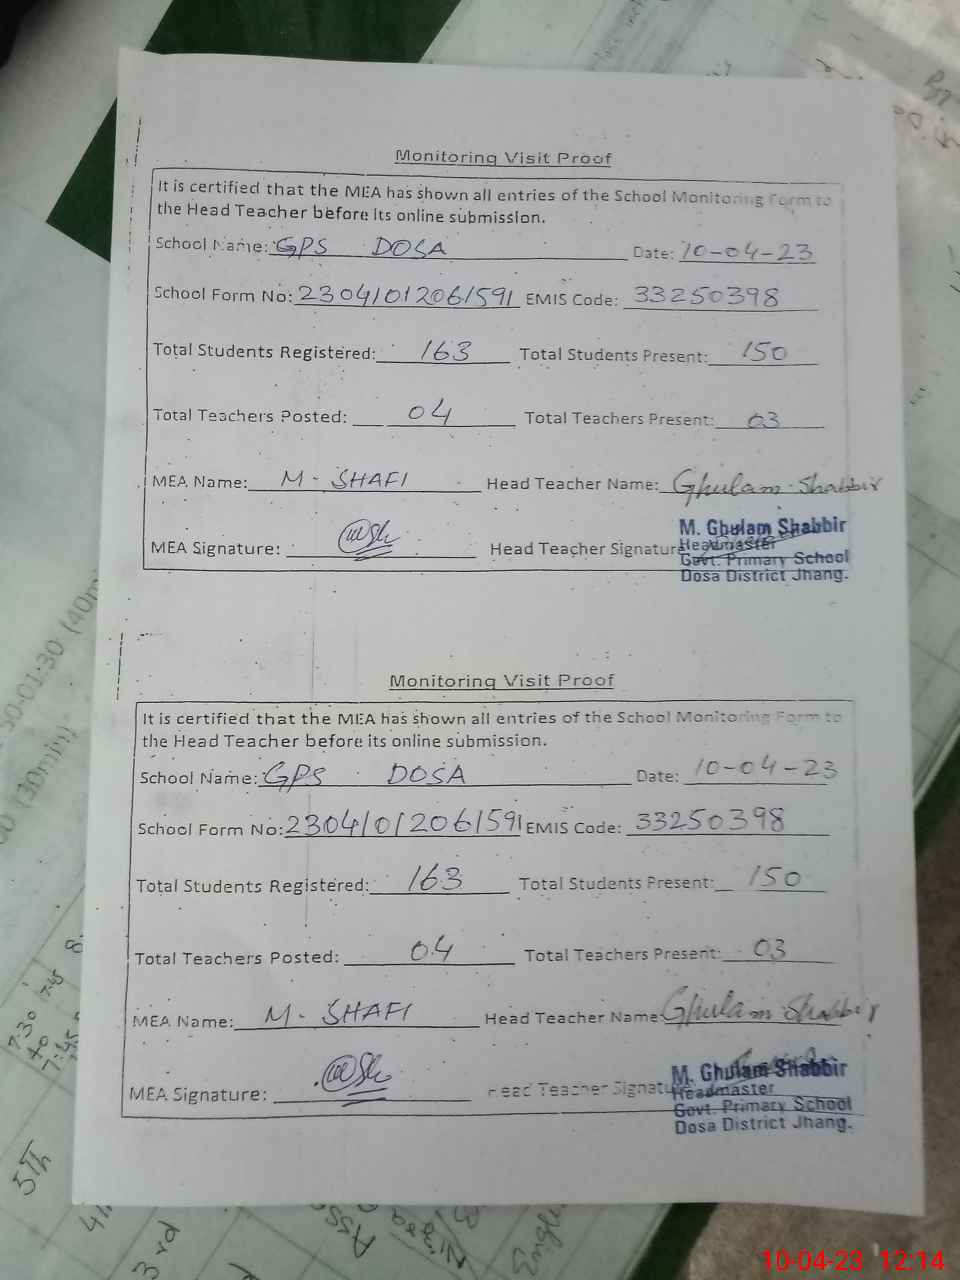 Monitoring Visit Proof
It is certified that the MEA has shown all entries of the School Monitoring Form to
the Head Teacher before its online submission.
School Name: GPS DOSA Date: 10-04-23
School Form No: 23041012061591 EMIS Code: 33250398
Total Students Registered: 163 Total Students Present: 150
Total Teachers Posted: 04 Total Teachers Present: 03
MEA Name: M. SHAFI Head Teacher Name: Ghulam Shabbir
MEA Signature: Head Teacher Signature
M. Ghulam Shabbir
Headmaster
Govt. Primary School
Dosa District Jhang.
Monitoring Visit Proof
It is certified that the MEA has shown all entries of the School Monitoring Form to
the Head Teacher before its online submission.
School Name: GPS DOSA Date: 10-04-23
School Form No: 23041012061591 EMIS Code: 33250398
Total Students Registered: 163 Total Students Present: 150
Total Teachers Posted: 04 Total Teachers Present: 03
MEA Name: M. SHAFI Head Teacher Name: Ghulam Shabbir
MEA Signature: Head Teacher Signatu
M. Ghulam Shabbir
Headmaster
Govt. Primary School
Dosa District Jhang.
(40m
(30min)
7:30
to
7:45
5Th
3rd
10-04-23 12:14